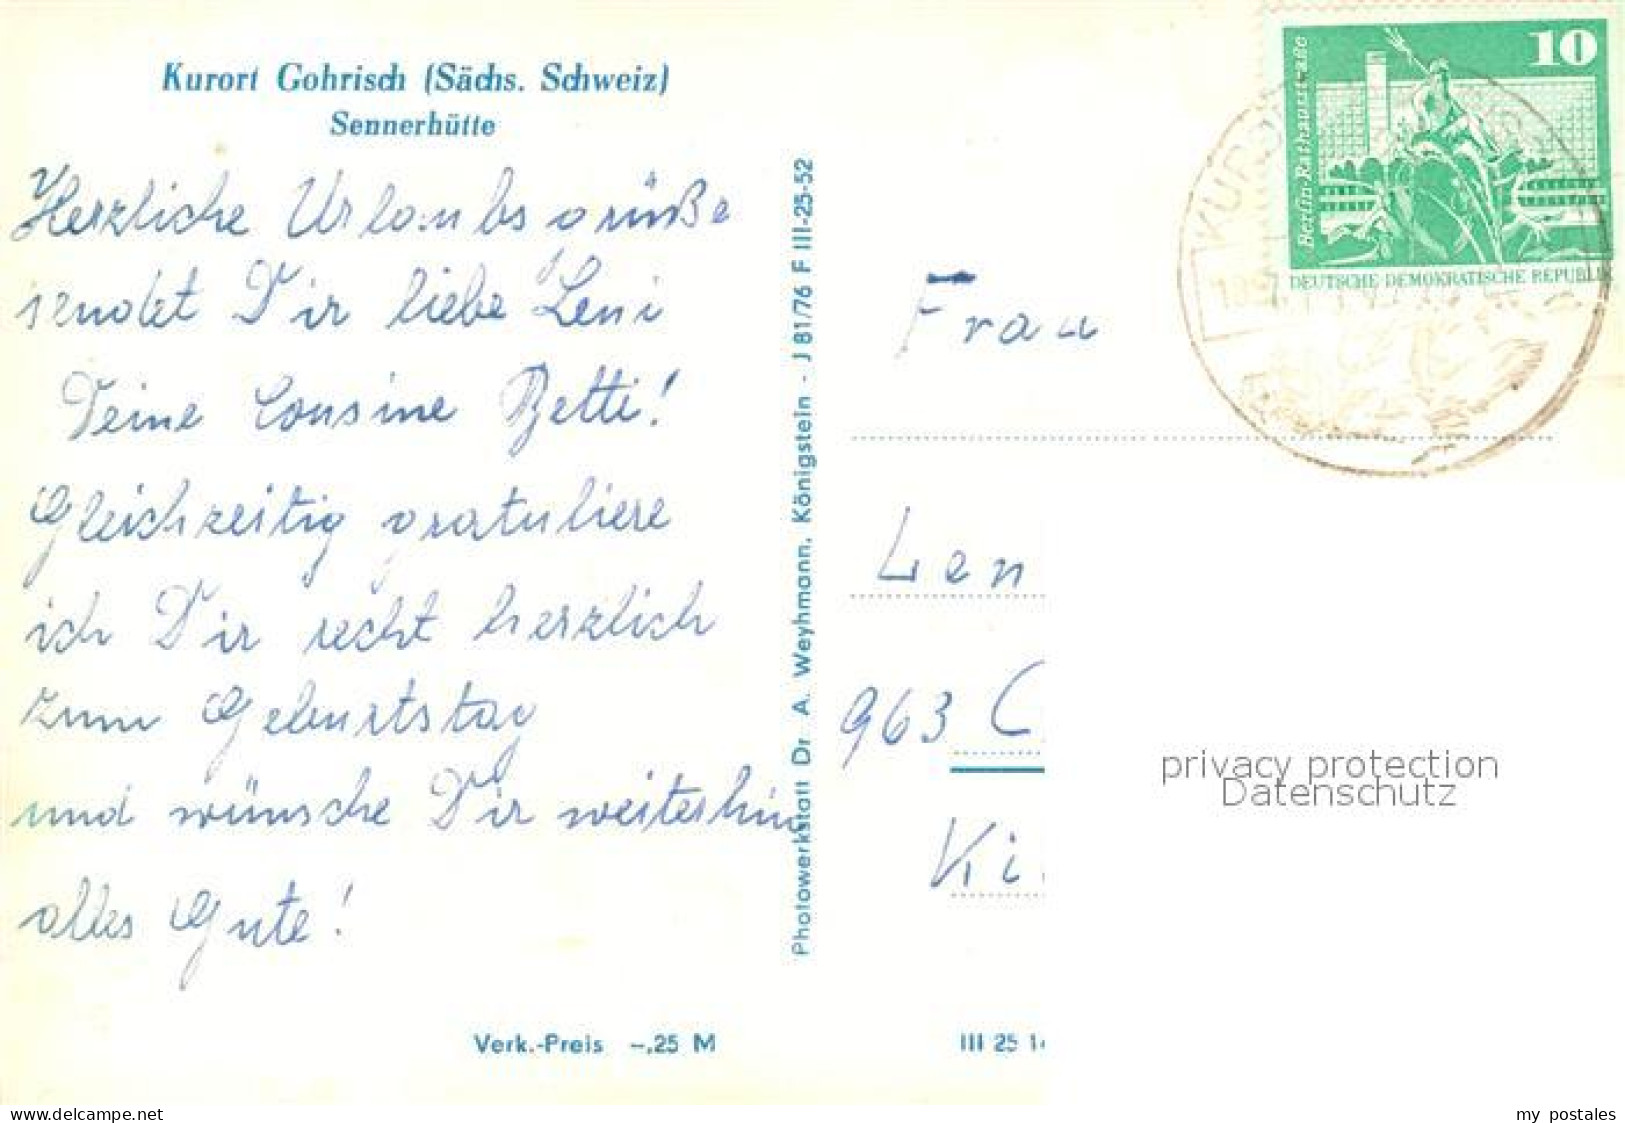 Kurort Gohrisch (Sächs. Schweiz)
Sennerhütte
Herzliche Urlaubsgrüße
sendet Dir liebe Leni
Deine Cousine Betti!
Gleichzeitig gratuliere
ich Dir recht herzlich
zum Geburtstag
und wünsche Dir weiterhin
alles Gute!
Verk.-Preis -,25 M
Photowerkstatt Dr. A. Weyhmann, Königstein - J 81/76 F III-25-52
10
Berlin-Rathausstraße
DEUTSCHE DEMOKRATISCHE REPUBLIK
Frau
Len
963 C
Ki
III 25 14
privacy protection
Datenschutz
delcampe.net
my_postales